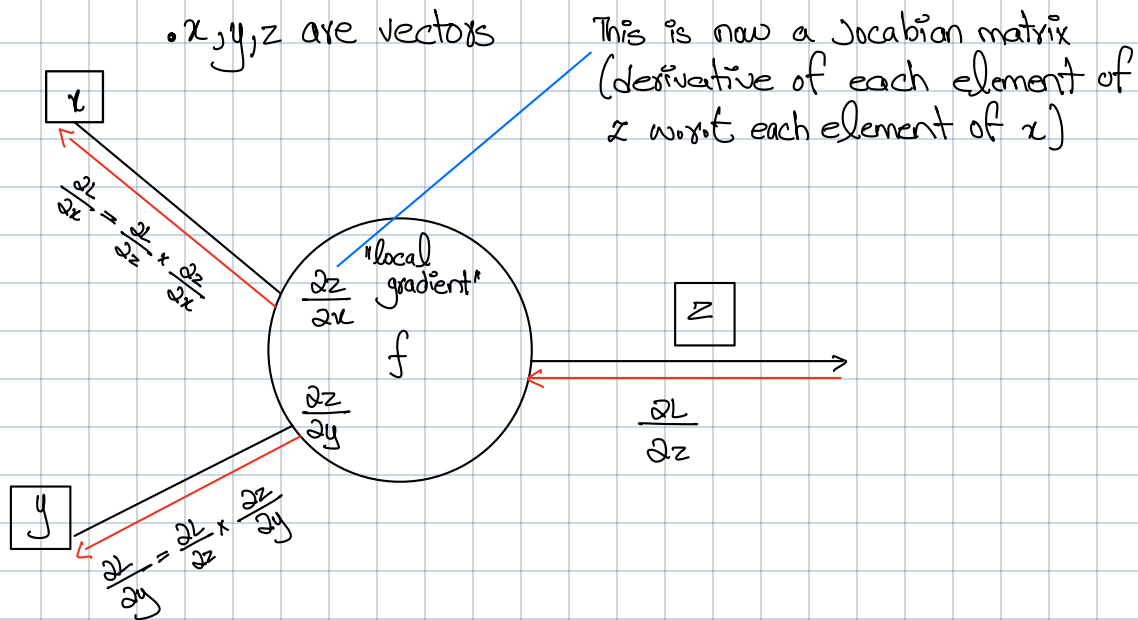 .x,y,z are vectors
This is now a Jocabian matrix
(derivative of each element of
z w.r.t each element of x)
x
∂L/∂x = ∂L/∂z × ∂z/∂x
"local
gradient"
∂z/∂x
f
z
∂z/∂y
∂L/∂z
y
∂L/∂y = ∂L/∂z × ∂z/∂y